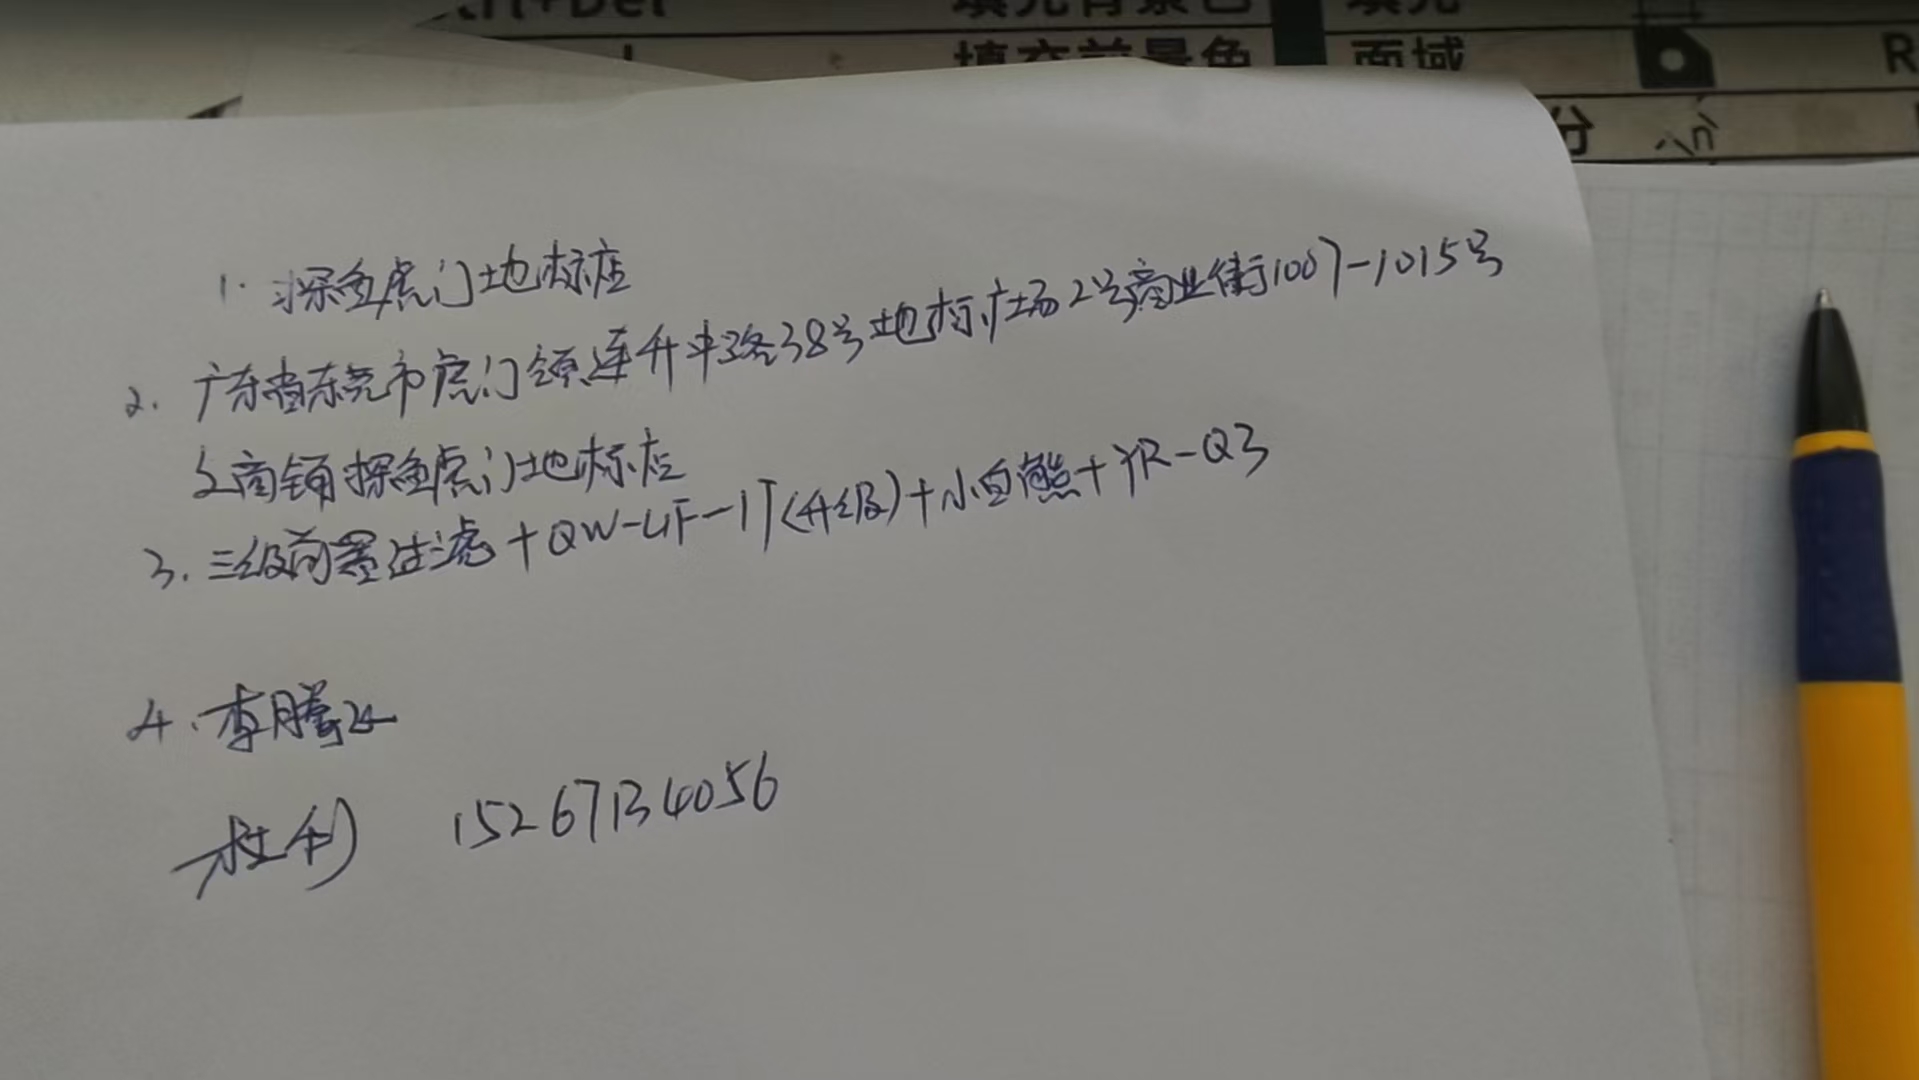 Ctrl+Del 填充背景色 填充
填充前景色 面域 R
分
1. 探鱼虎门地标店
2. 广东省东莞市虎门镇连升中路38号地标广场2号商业街1007-1015号
之商铺探鱼虎门地标店
3. 三级前置过滤+QW-UF-1T(升级)+小白熊+YR-Q3
4. 李腾
胜利 15267134056